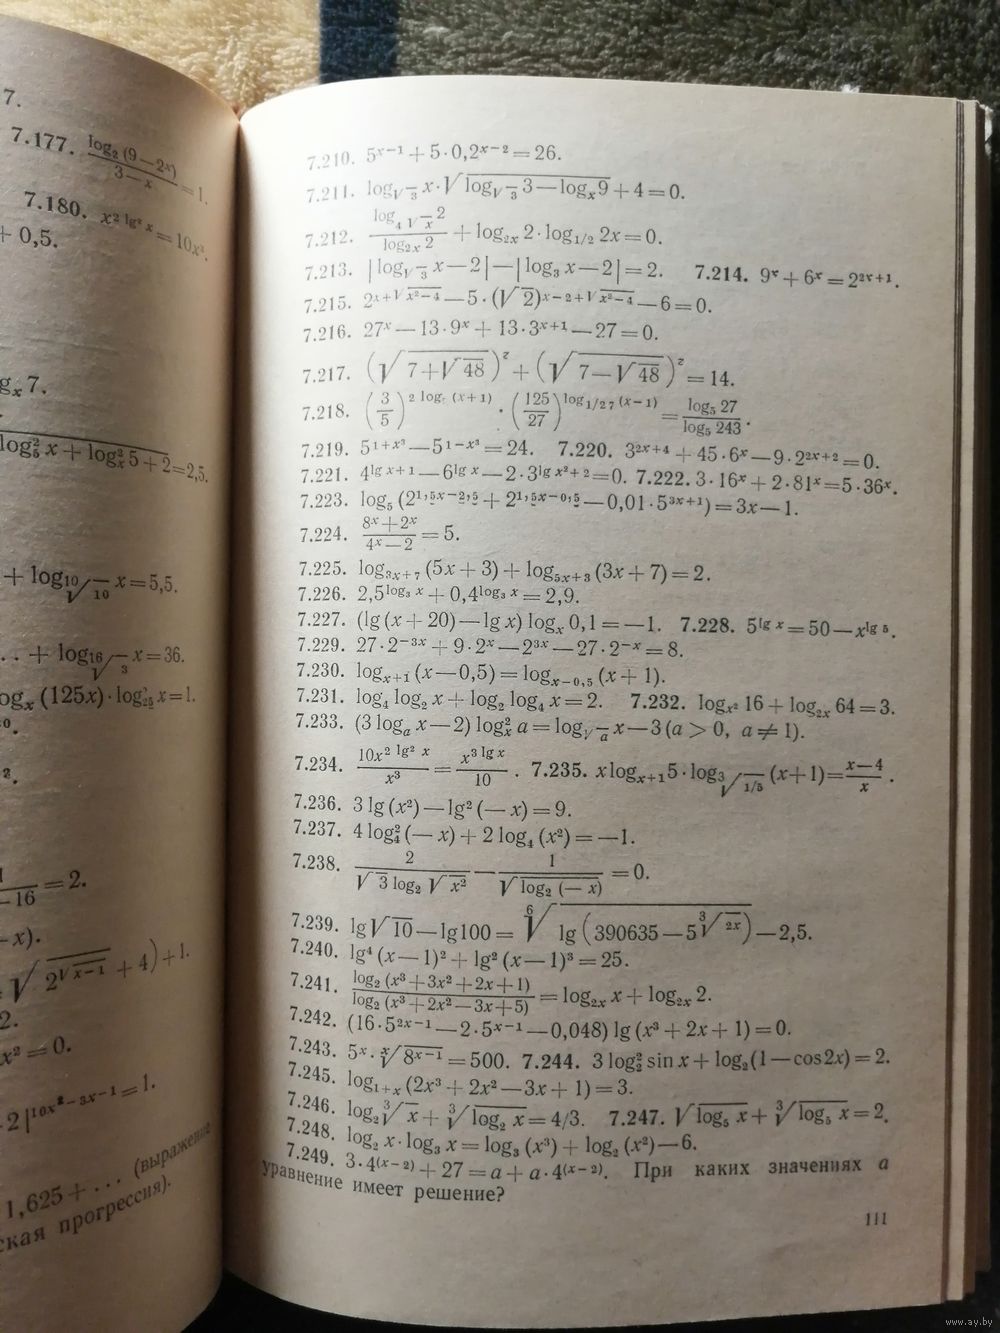 7.
7.177. log₂(9−2ˣ)/(3−x) = 1.
7.180. x^(2 lg² x) = 10x³.
+ 0,5.
gₓ 7.
log₅² x + logₓ² 5 + 2 = 2,5.
+ log_(¹⁰√10) x = 5,5.
.. + log_(¹⁶√3) x = 36.
ogₓ (125x)·log₂₅² x = 1.
−16 = 2.
−x).
√(2^√(x−1) + 4) + 1.
2.
x² = 0.
2|^(10x²−3x−1) = 1.
1,625 + ... (выражение
ская прогрессия).
7.210. 5^(x−1) + 5·0,2^(x−2) = 26.
7.211. log_√3 x·√(log_√3 3 − logₓ 9) + 4 = 0.
7.212. log_(4√x) 2 / log_(2x) 2 + log_(2x) 2·log_(1/2) 2x = 0.
7.213. |log_√3 x − 2| − |log₃ x − 2| = 2. 7.214. 9ˣ + 6ˣ = 2^(2x+1).
7.215. 2^(x+√(x²−4)) − 5·(√2)^(x−2+√(x²−4)) − 6 = 0.
7.216. 27ˣ − 13·9ˣ + 13·3^(x+1) − 27 = 0.
7.217. (√(7+√48))ᶻ + (√(7−√48))ᶻ = 14.
7.218. (3/5)^(2 log (x+1)) · (125/27)^(log_(1/27) (x−1)) = log₅ 27 / log₅ 243.
7.219. 5^(1+x³) − 5^(1−x³) = 24. 7.220. 3^(2x+4) + 45·6ˣ − 9·2^(2x+2) = 0.
7.221. 4^(lg x+1) − 6^(lg x) − 2·3^(lg x²+2) = 0. 7.222. 3·16ˣ + 2·81ˣ = 5·36ˣ.
7.223. log₅ (2^(1,5x−2,5) + 2^(1,5x−0,5) − 0,01·5^(3x+1)) = 3x − 1.
7.224. (8ˣ+2ˣ)/(4ˣ−2) = 5.
7.225. log_(3x+7) (5x + 3) + log_(5x+3) (3x + 7) = 2.
7.226. 2,5^(log₃ x) + 0,4^(log₃ x) = 2,9.
7.227. (lg (x + 20) − lg x) logₓ 0,1 = −1. 7.228. 5^(lg x) = 50 − x^(lg 5).
7.229. 27·2^(−3x) + 9·2ˣ − 2^(3x) − 27·2^(−x) = 8.
7.230. log_(x+1) (x − 0,5) = log_(x−0,5) (x + 1).
7.231. log₄ log₂ x + log₂ log₄ x = 2. 7.232. log_(x²) 16 + log_(2x) 64 = 3.
7.233. (3 logₐ x − 2) logₓ² a = log_√a x − 3 (a > 0, a ≠ 1).
7.234. 10x^(2 lg² x)/x³ = x^(3 lg x)/10. 7.235. x log_(x+1) 5·log_(³√(1/5)) (x+1) = (x−4)/x.
7.236. 3 lg (x²) − lg² (− x) = 9.
7.237. 4 log₄² (− x) + 2 log₄ (x²) = −1.
7.238. 2/(√3 log₂ √x²) − 1/√(log₂ (− x)) = 0.
7.239. lg √10 − lg 100 = ⁶√(lg (390635 − 5^(³√(2x)))) − 2,5.
7.240. lg⁴ (x − 1)² + lg² (x − 1)³ = 25.
7.241. log₂ (x³+3x²+2x+1) / log₂ (x³+2x²−3x+5) = log_(2x) x + log_(2x) 2.
7.242. (16·5^(2x−1) − 2·5^(x−1) − 0,048) lg (x³ + 2x + 1) = 0.
7.243. 5ˣ·ˣ√(8^(x−1)) = 500. 7.244. 3 log₂² sin x + log₂ (1 − cos 2x) = 2.
7.245. log_(1+x) (2x³ + 2x² − 3x + 1) = 3.
7.246. log₂ ³√x + ³√(log₂ x) = 4/3. 7.247. √(log₅ x) + ³√(log₅ x) = 2.
7.248. log₂ x·log₃ x = log₃ (x³) + log₂ (x²) − 6.
7.249. 3·4^(x−2) + 27 = a + a·4^(x−2). При каких значениях a
уравнение имеет решение?
111
www.ay.by